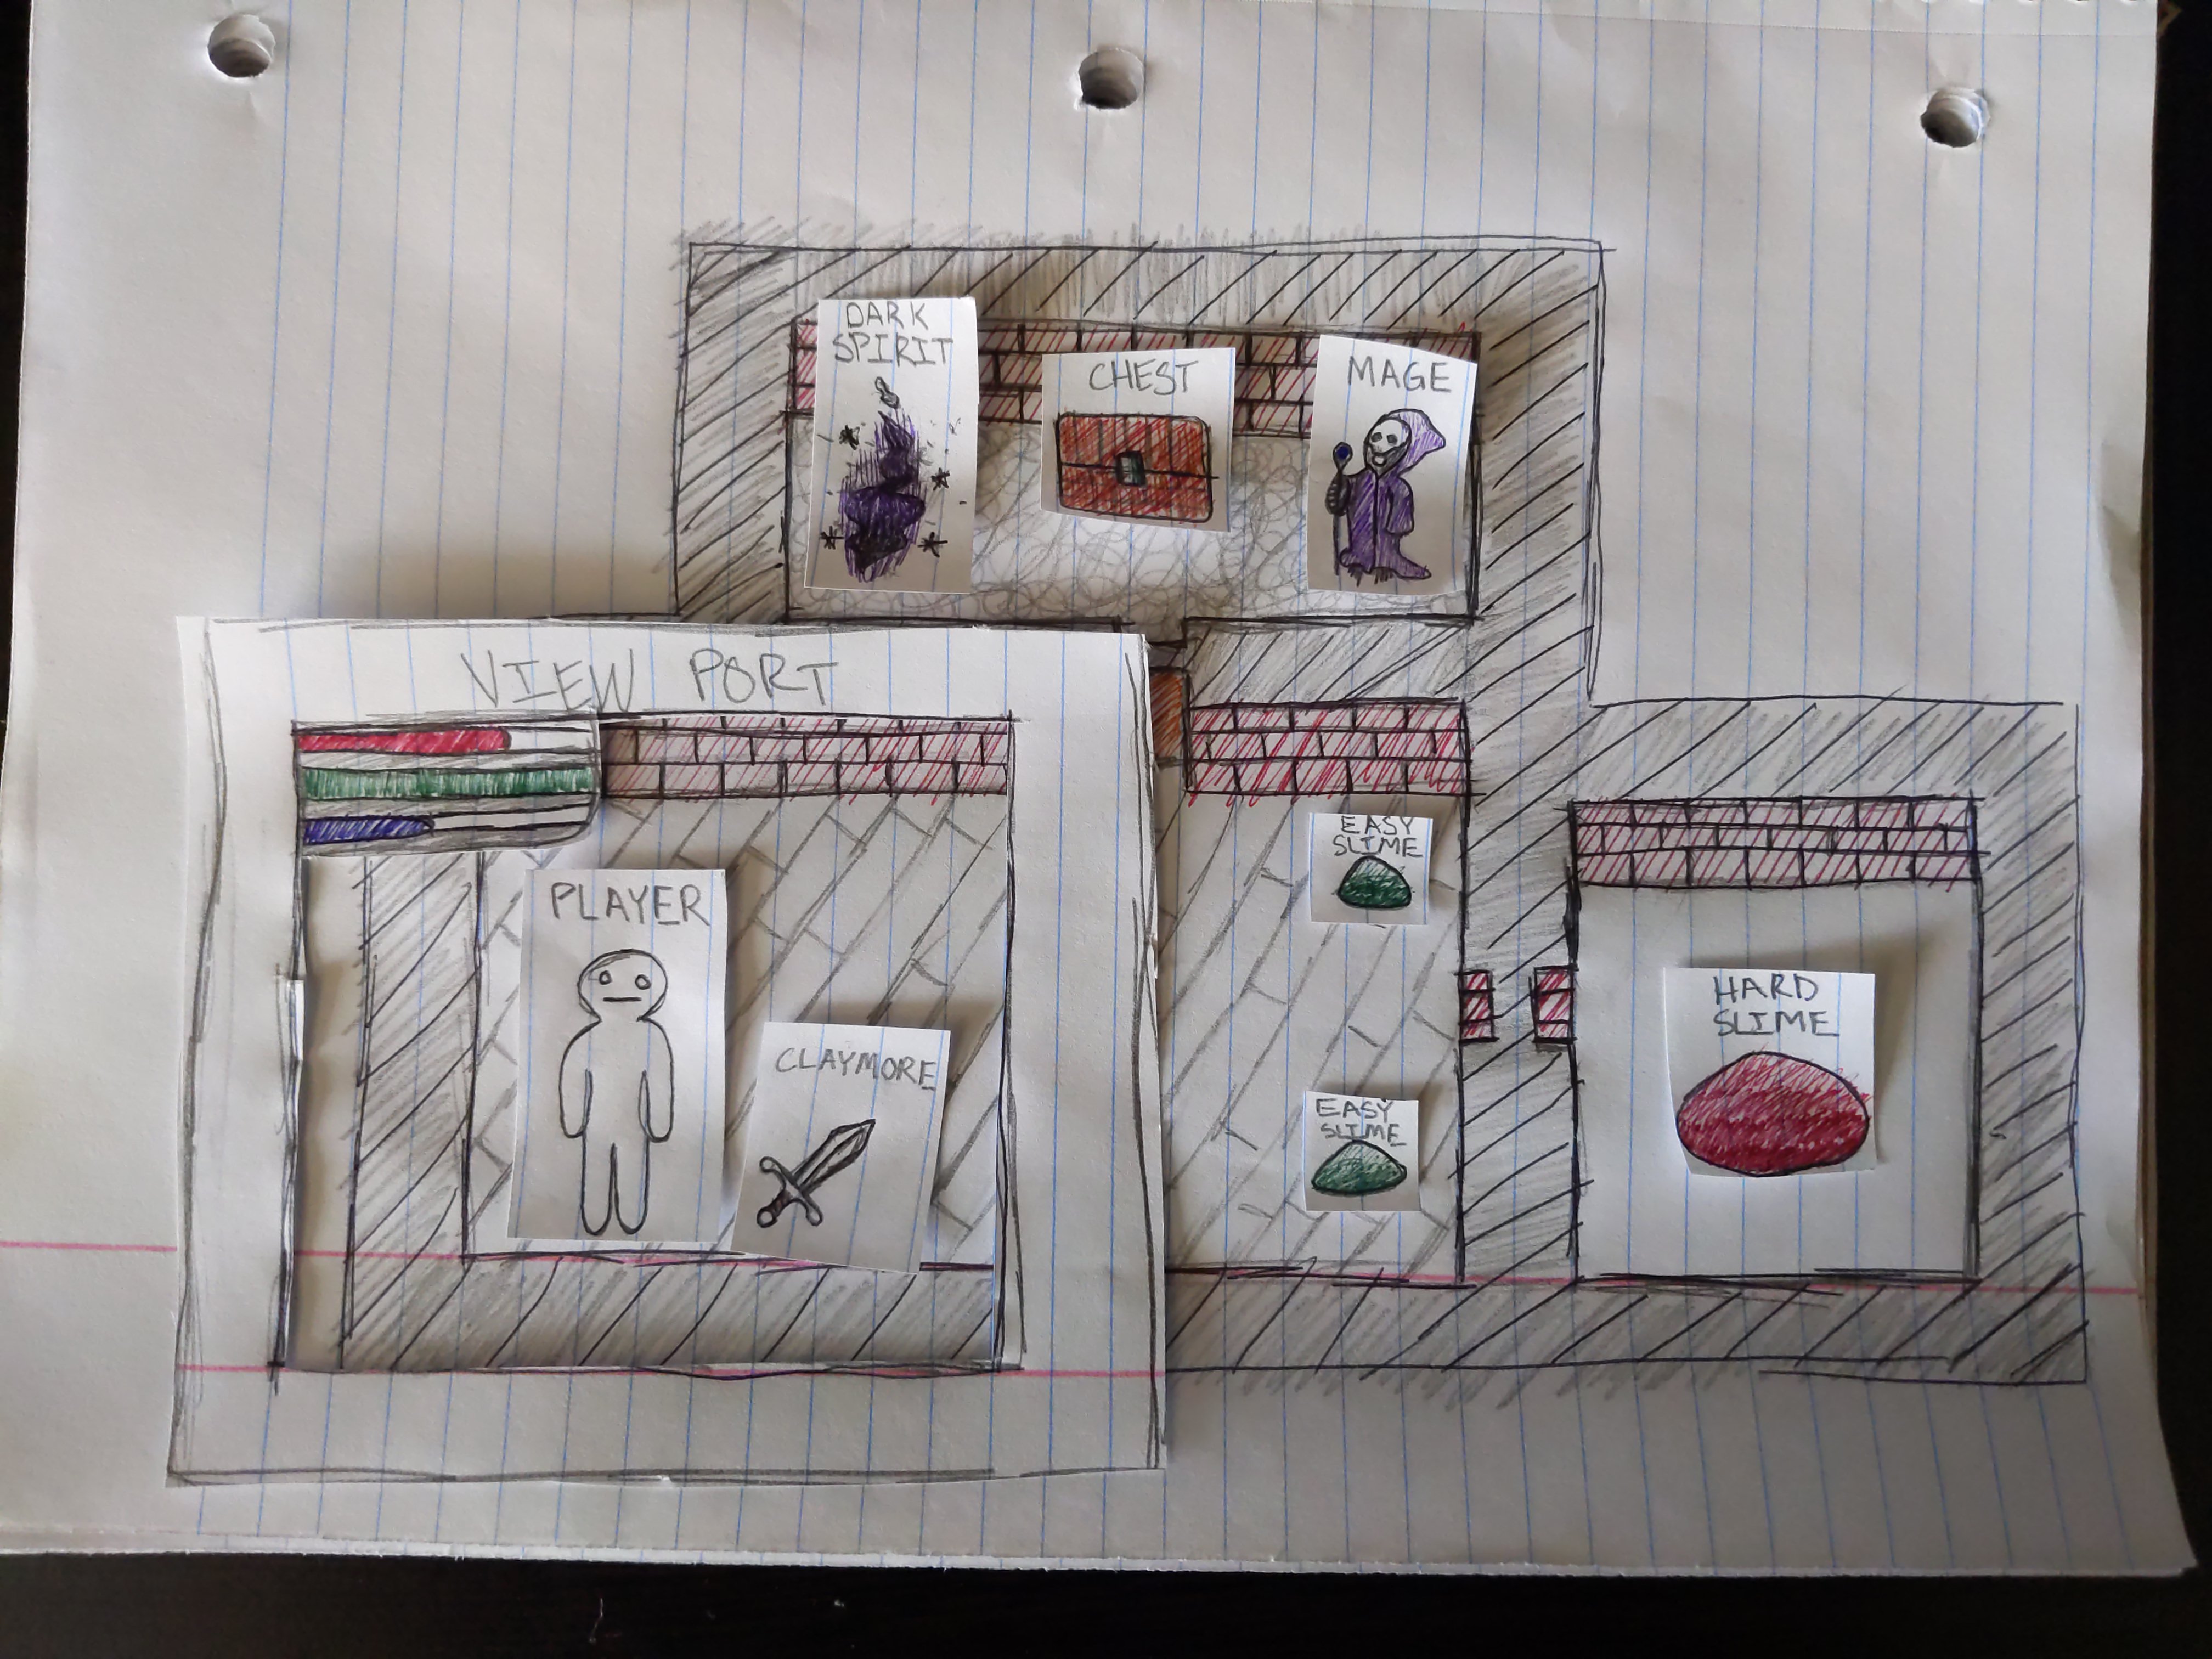 DARK
SPIRIT
CHEST
MAGE
VIEW PORT
PLAYER
CLAYMORE
EASY
SLIME
EASY
SLIME
HARD
SLIME